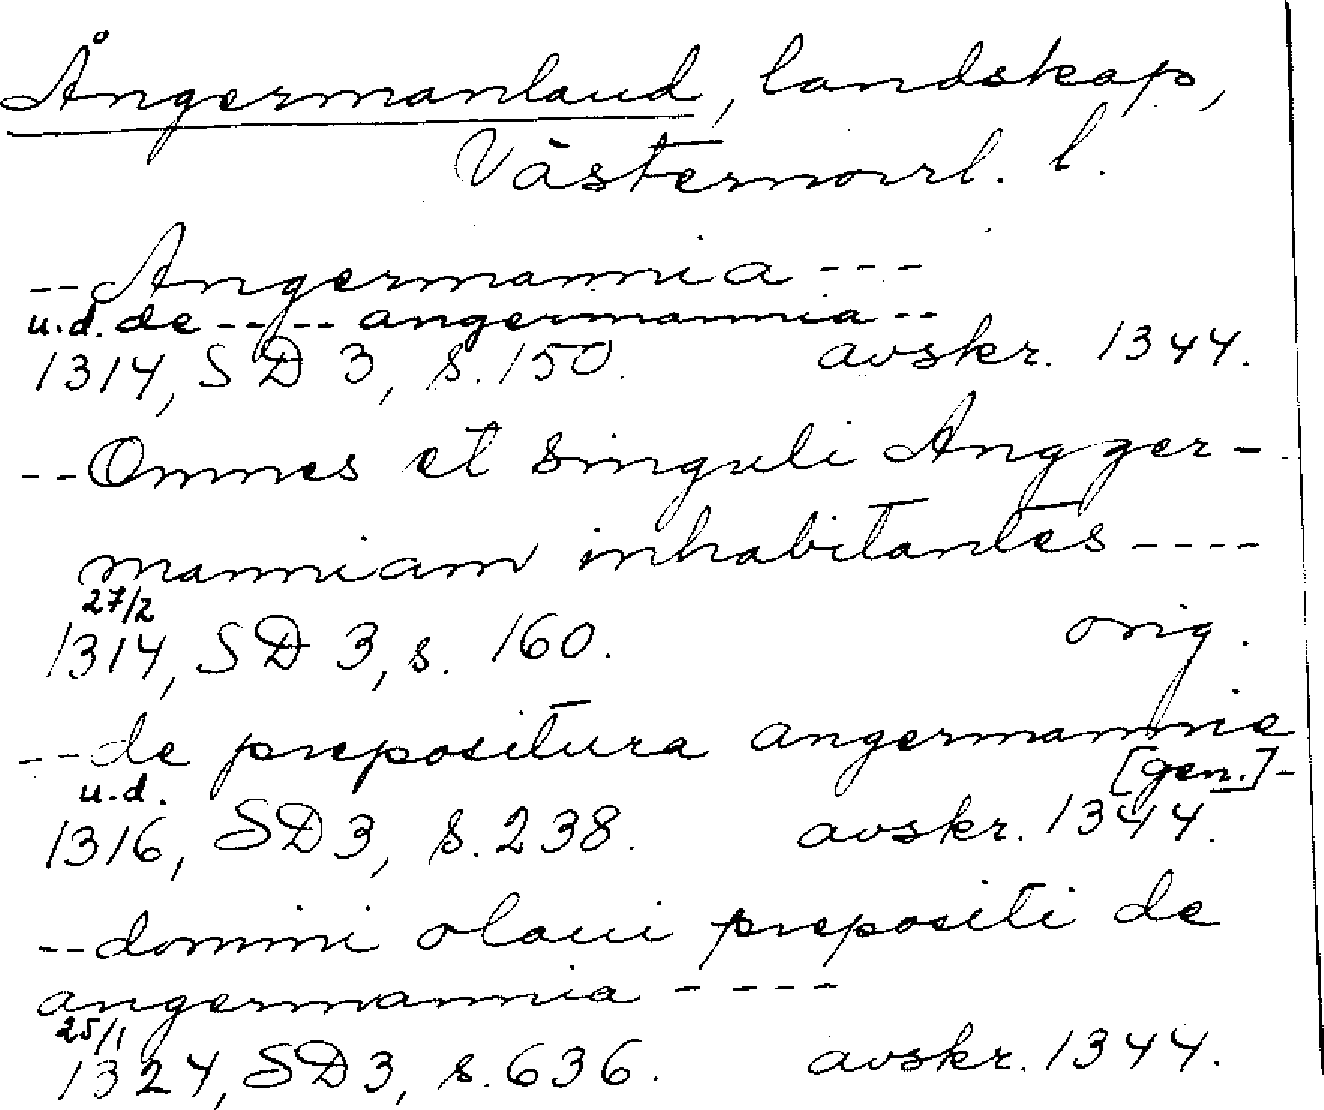 Ångermanland, landskap,
Västernorrl. l.
--Angermannia---
u.d. de ----- angermannia--
1314, SD 3, s. 150. avskr. 1344.
--Omnes et singuli Angger-
manniam inhabitantes----
27/2
1314, SD 3, s. 160. orig.
--de prepositura angermannie
[gen.]-
u.d.
1316, SD 3, s. 238. avskr. 1344.
--domini olaui prepositi de
angermannia ----
25/1
1324, SD 3, s. 636. avskr. 1344.